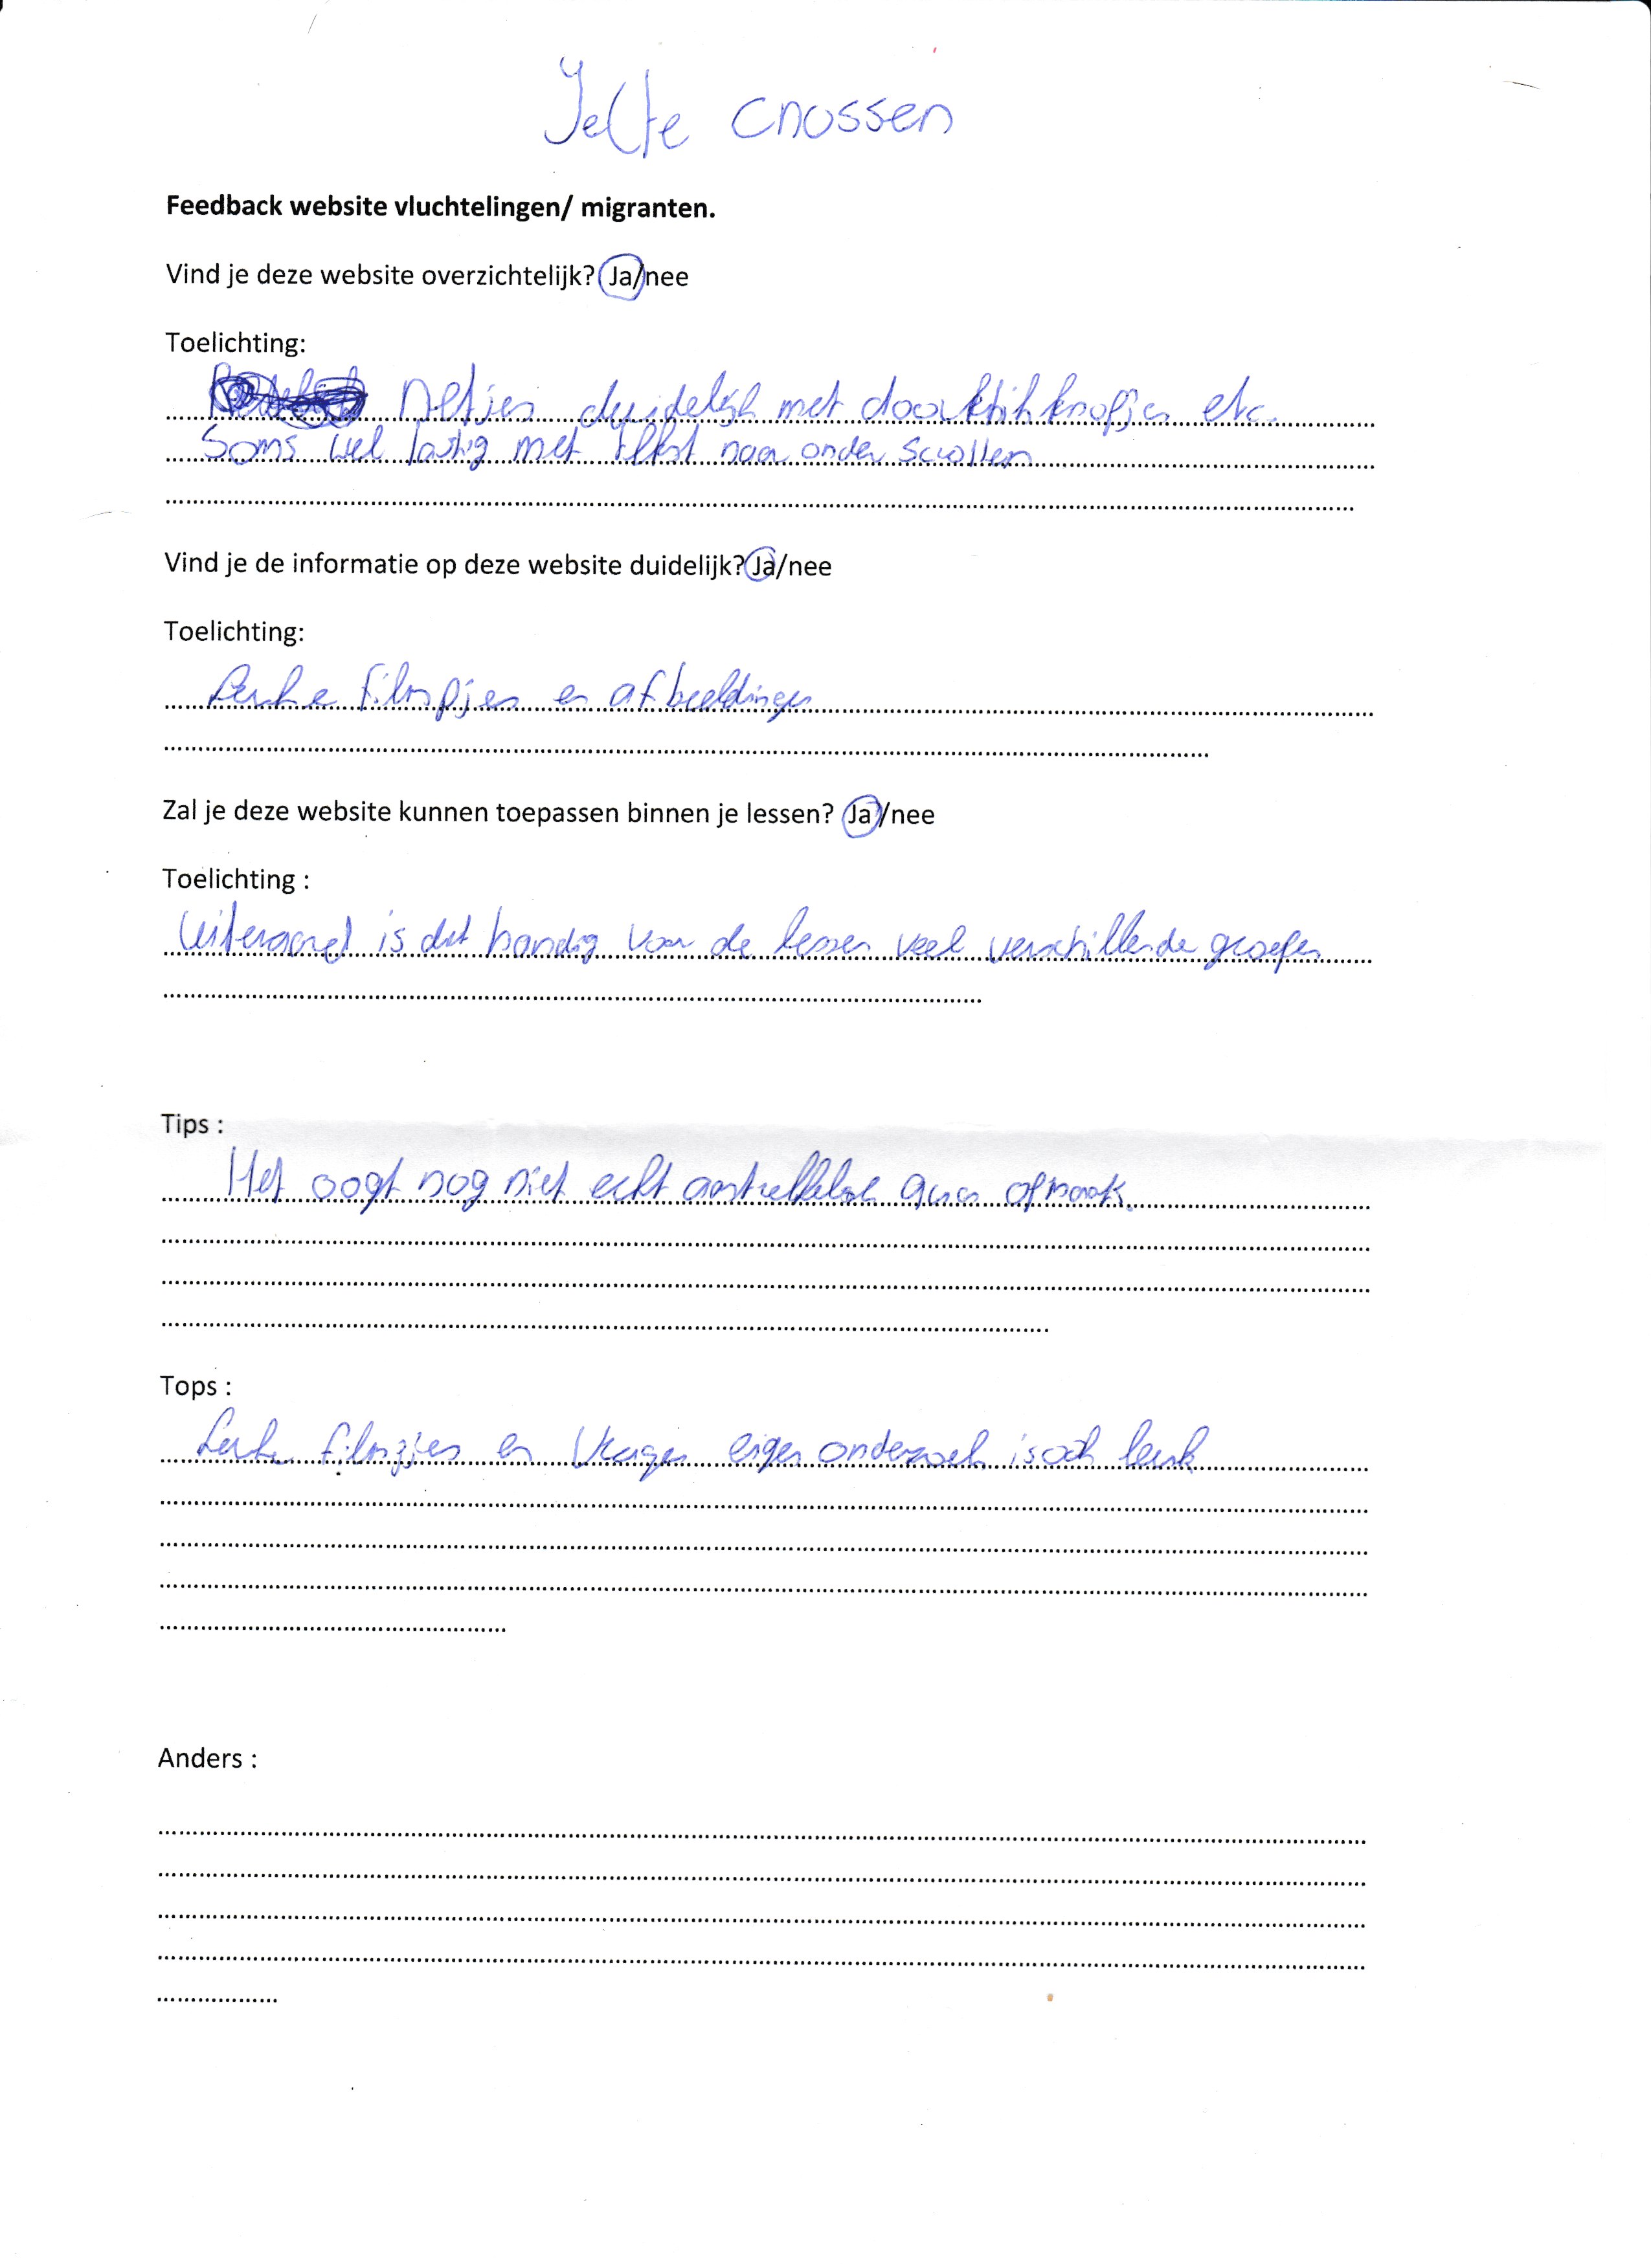 Jelte Cnossen
Feedback website vluchtelingen/ migranten.
Vind je deze website overzichtelijk? Ja/nee
Toelichting:
netjes duidelijk met doorklik knopjes etc.
Soms wel lastig met tekst naar onder scrollen
Vind je de informatie op deze website duidelijk? Ja/nee
Toelichting:
Leuke filmpjes en afbeeldingen
Zal je deze website kunnen toepassen binnen je lessen? Ja/nee
Toelichting :
Uiteraard is dit handig voor de lessen veel verschillende groepen
Tips :
Het oogt nog niet echt aantrekkelijk qua opmaak.
Tops :
Leuke filmpjes en vragen eigen onderzoek is ook leuk
Anders :